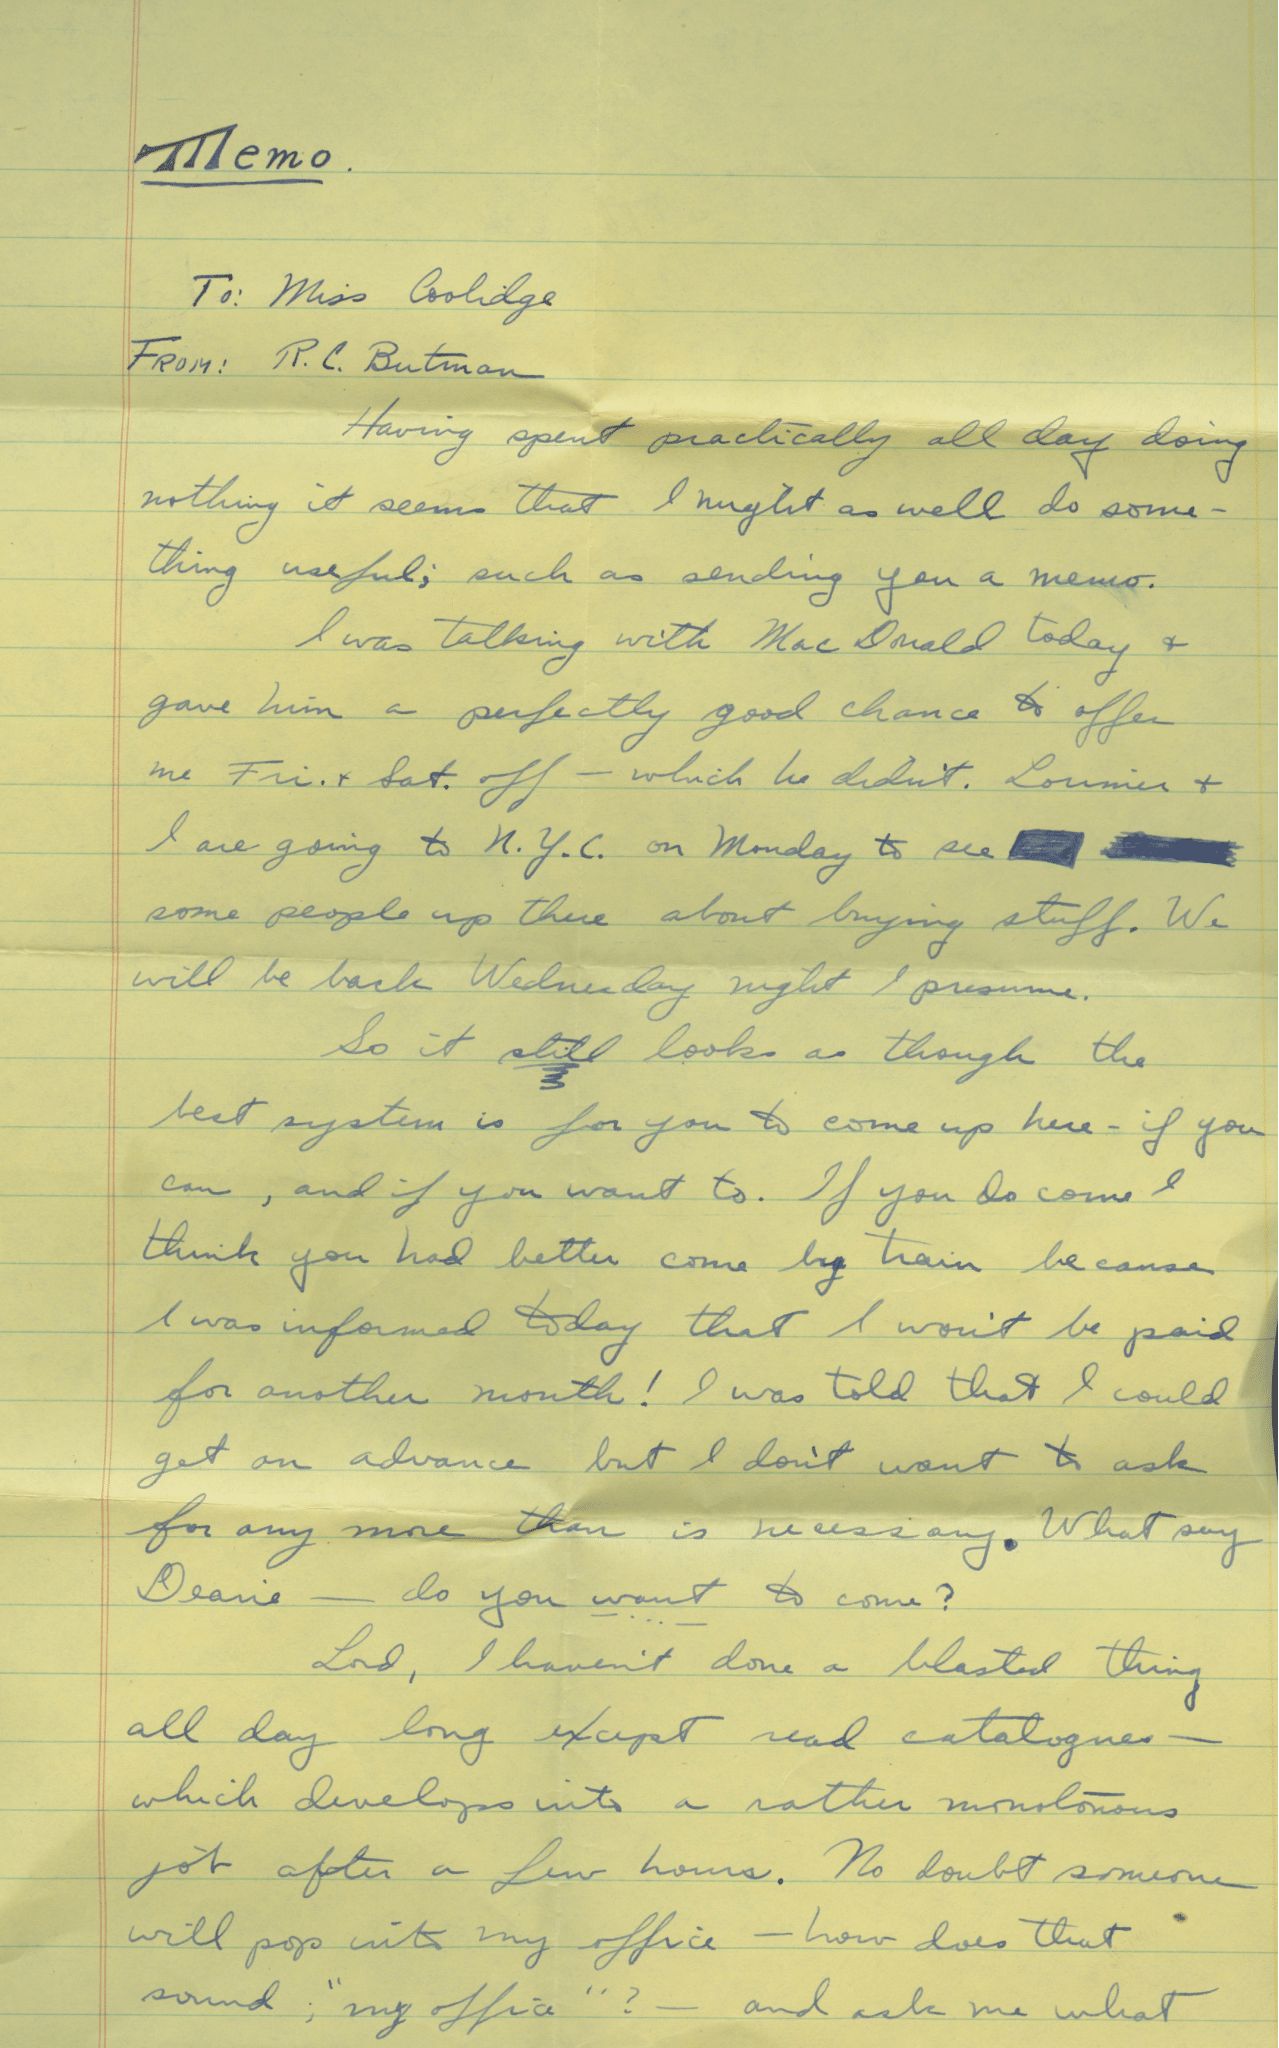 Memo.
To: Miss Coolidge
FROM: R.C. Butman
Having spent practically all day doing
nothing it seems that I might as well do some-
thing useful; such as sending you a memo.
I was talking with MacDonald today +
gave him a perfectly good chance to offer
me Fri. + Sat. off — which he didn't. Lorimer +
I are going to N.Y.C. on Monday to see
some people up there about buying stuff. We
will be back Wednesday night I presume.
So it still looks as though the
best system is for you to come up here - if you
can, and if you want to. If you do come I
think you had better come by train because
I was informed today that I won't be paid
for another month! I was told that I could
get an advance but I don't want to ask
for any more than is necessary. What say
Dearie — do you want to come?
Lord, I haven't done a blasted thing
all day long except read catalogues —
which develops into a rather monotonous
job after a few hours. No doubt someone
will pop into my office — how does that
sound; "my office"? — and ask me what